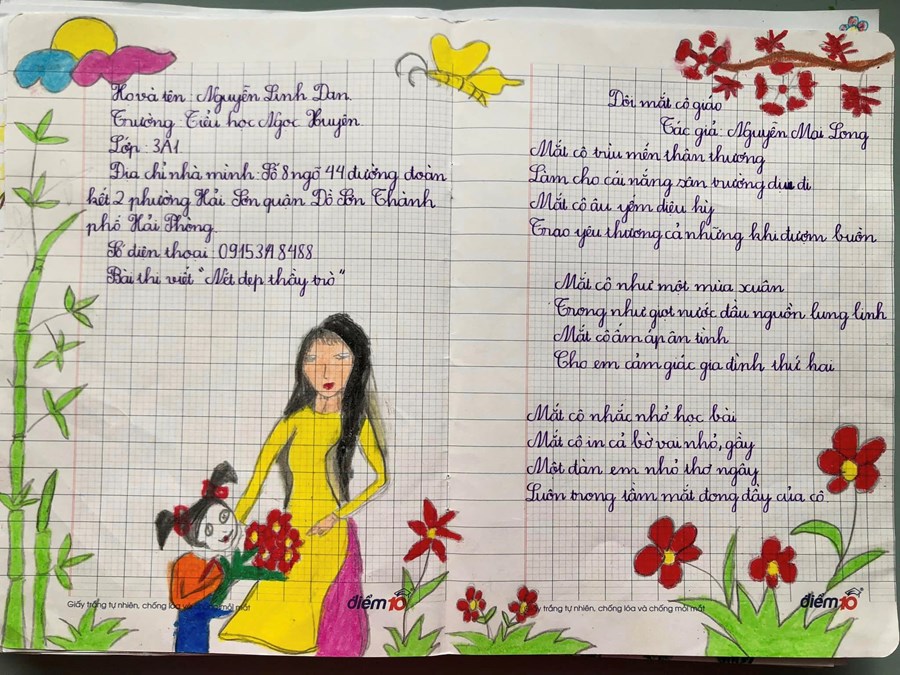 Họ và tên : Nguyễn Linh Đan.
Trường : Tiểu học Ngọc Xuyên.
Lớp : 3A1
Địa chỉ nhà mình : Số 8 ngõ 44 đường đoàn
kết 2 phường Hải Sơn quận Đồ Sơn Thành
phố Hải Phòng.
Số điện thoại :
Bài thi viết "Nét đẹp thầy trò"
Giấy trắng tự nhiên, chống lóa và chống mỏi mắt
điểm 10
Đôi mắt cô giáo
Tác giả : Nguyễn Mai Long
Mắt cô trìu mến thân thương
Làm cho cái nắng sân trường dịu đi
Mắt cô âu yếm diệu kỳ
Trao yêu thương cả những khi đượm buồn
Mắt cô như một mùa xuân
Trong như giọt nước đầu nguồn lung linh
Mắt cô ấm áp ân tình
Cho em cảm giác gia đình thứ hai
Mắt cô nhắc nhở học bài
Mắt cô in cả bờ vai nhỏ, gầy
Một đàn em nhỏ thơ ngây
Luôn trong tầm mắt đong đầy của cô
giấy trắng tự nhiên, chống lóa và chống mỏi mắt
điểm 10